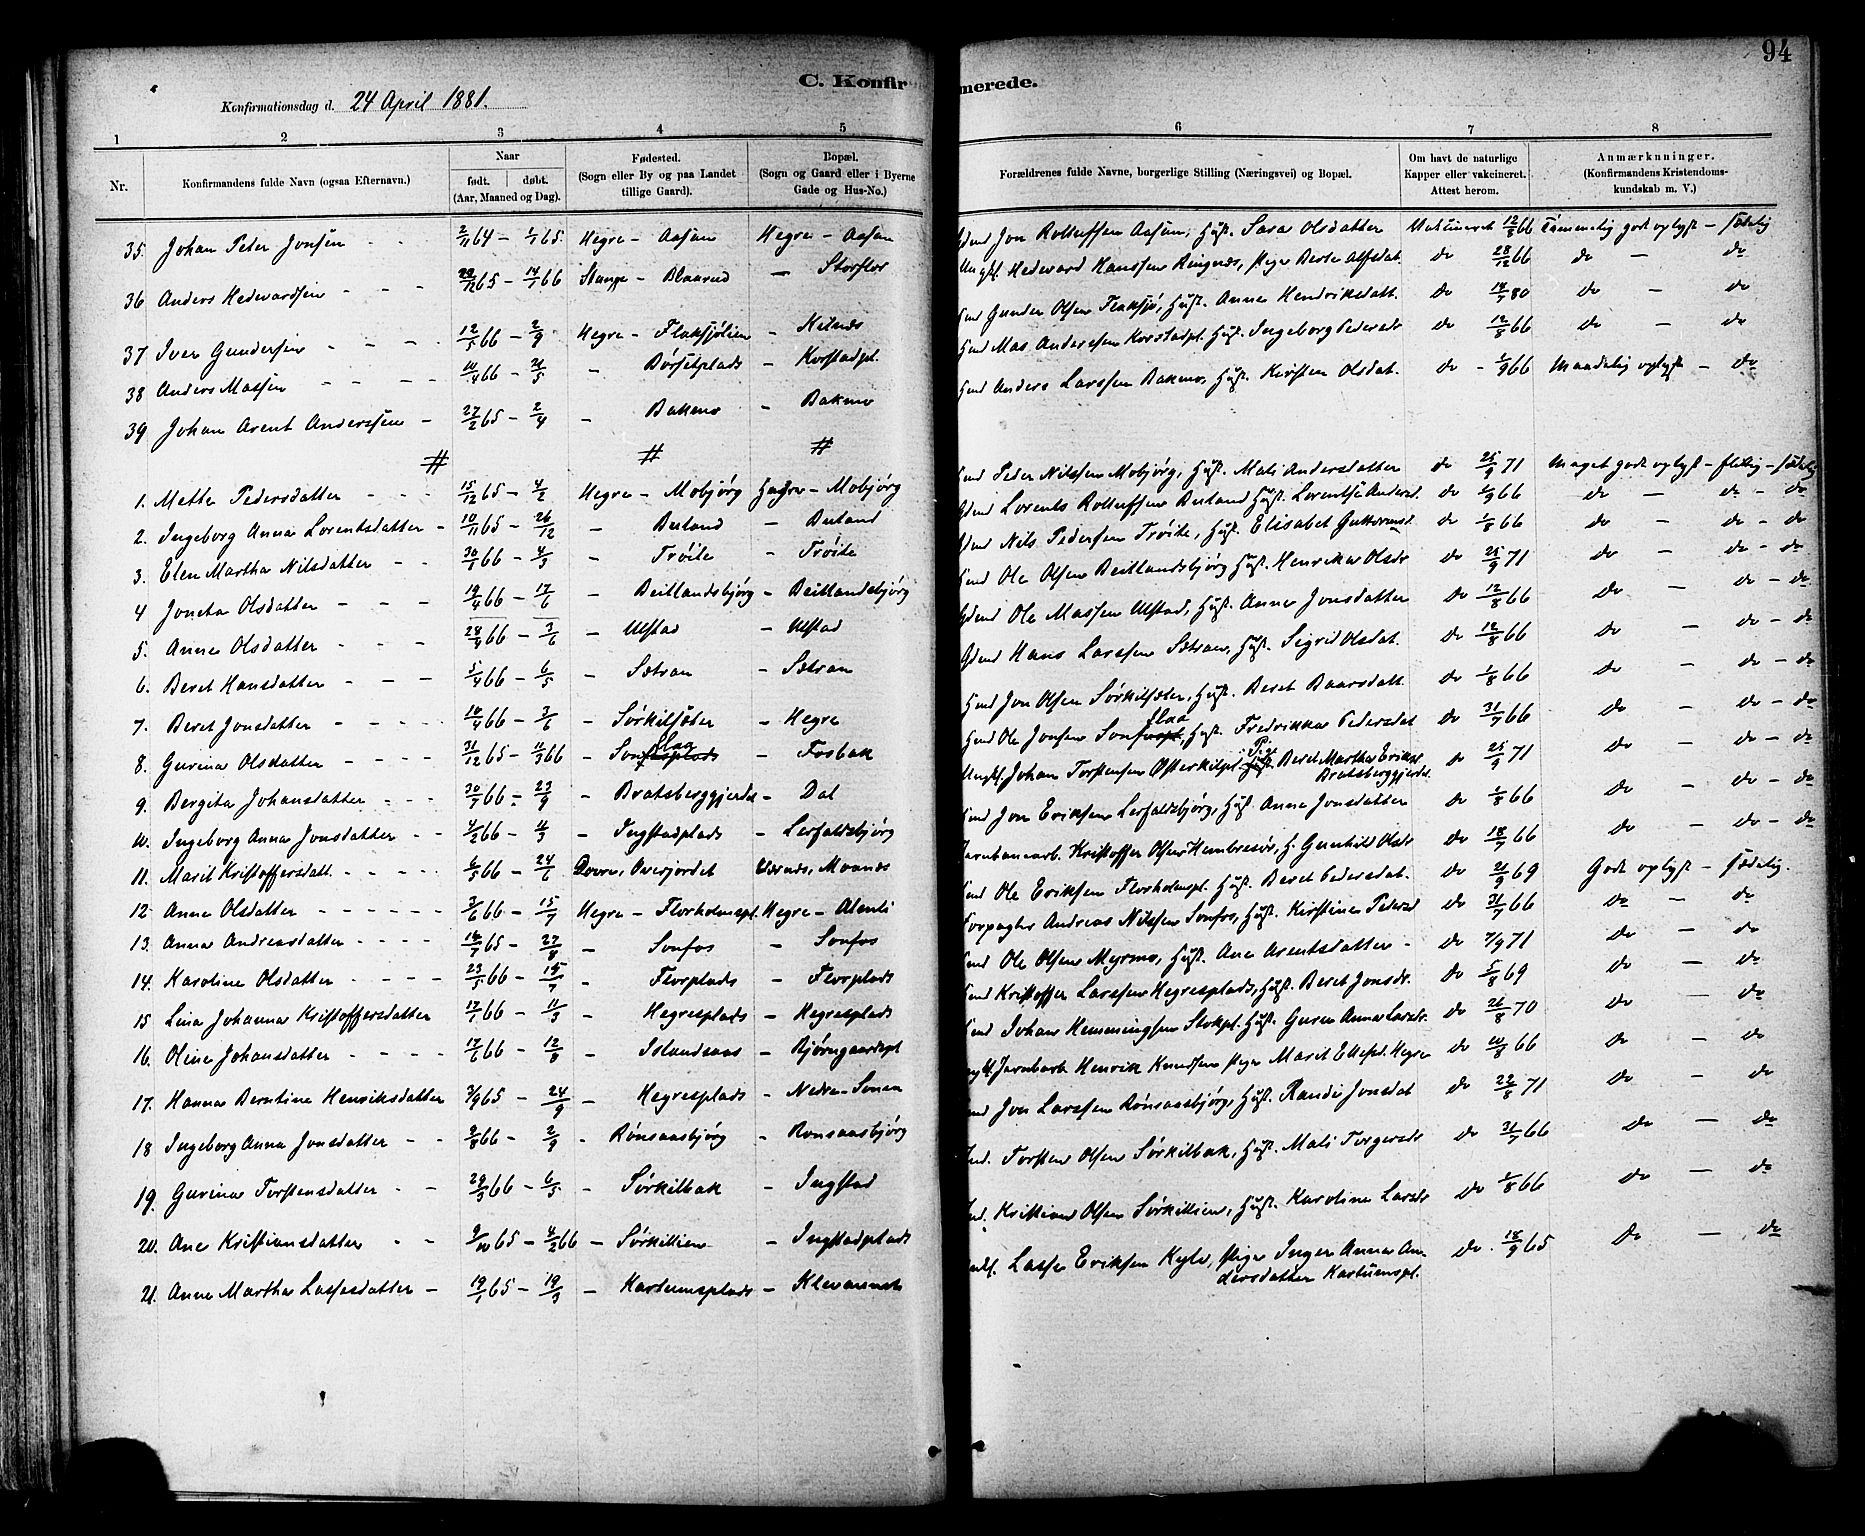 94
C. Konfirmerede.
Konfirmationsdag d. 24 April 1881.
1 2 3 4 5 6 7 8
Nr. Konfirmandens fulde Navn (ogsaa Efternavn). Naar født. døbt. (Aar, Maaned og Dag). Fødested. (Sogn eller By og paa Landet tillige Gaard). Bopæl. (Sogn og Gaard eller i Byerne Gade og Hus-No.) Forældrenes fulde Navne, borgerlige Stilling (Næringsvei) og Bopæl. Om havt de naturlige Kapper eller vakcineret. Attest herom. Anmærkninger. (Konfirmandens Kristendomskundskab m. V.)
35. Johan Peter Jonsen 2/11 64 – 1/1 65. Hegre – Aasan Hegre – Aasan Jon Rolluffsen Aasan, Hust. Sara Olsdatter Vakcineret 12/8 66 Temmelig godt oplyst – sædelig
36 Anders Hedevardsen 22/12 65 – 14/1 66 Stange – Blaarud – Storflor Ungk. Hedevard Hanssen Ringnes, Pige Berte Alfsdat. do 28/12 66 do – do
37. Iver Gundersen 12/5 66 – 2/9 Hegre – Flaksjølien – Gunder Olsen Flaksjø, Hust. Anne Hendriksdatt. do 14/7 80 do – do
38 Anders Massen 66 – Børsetplads – Korstadpl. Mas Anderssen Korstadpl. Hust. Ingeborg Pedersdr do 12/8 66 do – do
39 Johan Arent Anderssen 27/2 65 – 2/4 – Bakmo – Bakmo Anders Larssen Bakmo, Hust. Kirsten Olsdat. do 66 Maadelig oplyst – do
# # #
1. Mette Pedersdatter 15/12 65 – 4/2 Hegre – Mobjørg Hegre – Mobjørg Peder Nilssen Mobjørg, Hust. Mali Andersdatter do 25/9 71 Meget godt oplyst – flittig – sædelig
2. Ingeborg Anna Lorentsdatter 10/11 65 – 26/12 – Butand – Butand Lorents Rolluffsen Butand Hust. Lorentse Andersd. do 66 do – do – do
3. Elen Martha Nilsdatter 30/1 66 – 4/3 – Trøite – Trøite Nils Pedersen Trøite, Hust. Elisabet Guttormsd. do 1/8 66 do – do – do
4 Joneta Olsdatter 19/4 66 – 17/6 – Beitlandsbjørg – Beitlandsbjørg Ole Olsen Beitlandsbjørg Hust. Henrika Olsdr do 25/9 71 do – do – do
5. Anne Olsdatter 66 – 3/6 – Ulstad – Ulstad Ole Massen Ulstad, Hust. Anne Jonsdatter do 12/8 66 do – do – do
6. Beret Hansdatter 5/4 66 – 6/5 – Sætran – Sætran Hans Larssen Sætran, Hust. Sigrid Olsdat. do 12/8 66 do – do – do
7. Beret Jonsdatter 10/4 66 – 3/6 – Sørkilsæter – Hegre Jon Olsen Sørkilsæter, Hust. Beret Baarsdatt. do 1/8 66 do – do – do
8. Gurina Olsdatter 31/12 65 – 11/3 66 – Sonflaa – Fosbak Ole Jonsen Sonflaa, Hust. Fredrikka Pedersdat do 31/7 66 do – do – do
9. Bergita Johansdatter 30/7 66 – 23/9 – Bratsberggjerdet – Dal Ungk. Johan Torstensen Østerkilpl. Pige Beret Martha Eriksd. Bratsberggjerdet do 25/9 71 do – do – do
10. Ingeborg Anna Jonsdatter 4/2 66 – 11/3 – Ingstadplads – Lerfaldsbjørg Jon Eriksen Lerfaldsbjørg, Hust. Anne Jonsdatter do 1/8 66 do – do – do
11. Marit Kristoffersdatt. 6/5 66 – 24/6 Dovre, Overjordet Værnes, Moanes Jernbanearb. Kristoffer Olsen Hembresør, H. Gunhild Olsdr do 18/7 66 do – do – do
12. Anne Olsdatter 3/6 66 – 15/7 Hegre – Florholmspl. Hegre – Ole Eriksen Florholmspl. Hust. Beret Pedersdat. do 69 Godt oplyst – sædelig.
13. Anna Andreasdatter 16/7 65 – 27/8 – Sonfos – Sonfos Andreas Nilssen Sonfos, Hust. Kirstine Pedersd do 31/7 66 do – do
14. Karoline Olsdatter 23/5 66 – 15/7 – Florplads – Florplads Ole Olsen Myrmo, Hust. Ane Arentsdatter do 7/9 71 do – do
15 Lina Johanna Kristoffersdatter 17/1 66 – 11/3 – Hegresplads – Hegresplads Kristoffer Larssen Hegresplads, Hust. Beret Jonsdr. do 5/8 69 do – do
16. Oline Johansdatter 17/6 66 – 12/8 – Islandsaas – Bjørngaardspl Johan Hemmingsen Stokpl. Hust. Guren Anna Larsdr. do 26/8 70 do – do
17. Hanna Berntine Henriksdatter 3/9 65 – 24/9 – Hegresplads – Nedre-Sonen Jernbarb. Henrik Knudsen Pige Marit Ellefsd. Hegre do 66 do – do
18 Ingeborg Anna Jonsdatter 66 – 2/9 – Rønsaasbjørg – Ronsaasbjørg Jon Larssen Rønsaasbjørg, Hust. Randi Jonsdat do 22/8 71 do – do
19. Gurina Torstensdatter 66 – 6/5 – Sørkilbak – Ingstad Torsten Olsen Sørkilbak, Hust. Mali Torgersdr do 31/7 66 do – do
20. Ane Kristiansdatter 65 – 4/2 66 – Sørkillien – Ingstadplads Kristian Olsen Sørkillien, Hust. Karoline Larsdr do 1/8 66 do – do
21. Anne Martha Lassesdatter 19/1 65 – 19/3 – Kartumsplads – Lasse Eriksen Pige Inger Anna Andersdatter Kartumspl. do. 18/9 65 do – do